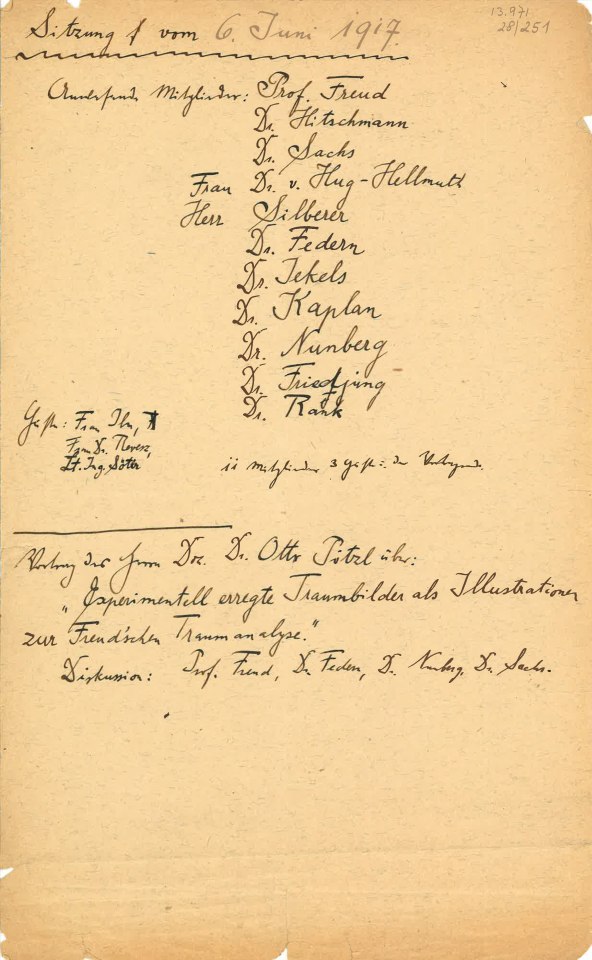 13.971
28/251
Sitzung vom 6. Juni 1917.
Anwesende Mitglieder: Prof. Freud
Dr. Hitschmann
Dr. Sachs
Frau Dr. v. Hug-Hellmuth
Herr Silberer
Dr. Federn
Dr. Jekels
Dr. Kaplan
Dr. Nunberg
Dr. Friedjung
Dr. Rank
Gäste: Frau
Frau Dr. Revesz,
Lt. Ing.
ii Mitglieder 3 Gäste: der Vortragende.
Vortrag des Herrn Doz. Dr. Otto Pötzl über:
"Experimentell erregte Traumbilder als Illustrationen
zur Freud'schen Traumanalyse."
Diskussion: Prof. Freud, Dr. Federn, Dr. Nunberg, Dr. Sachs.